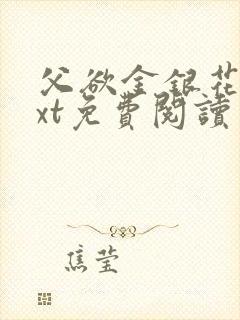 父欲金银花
xt免費閱讀
焦莹